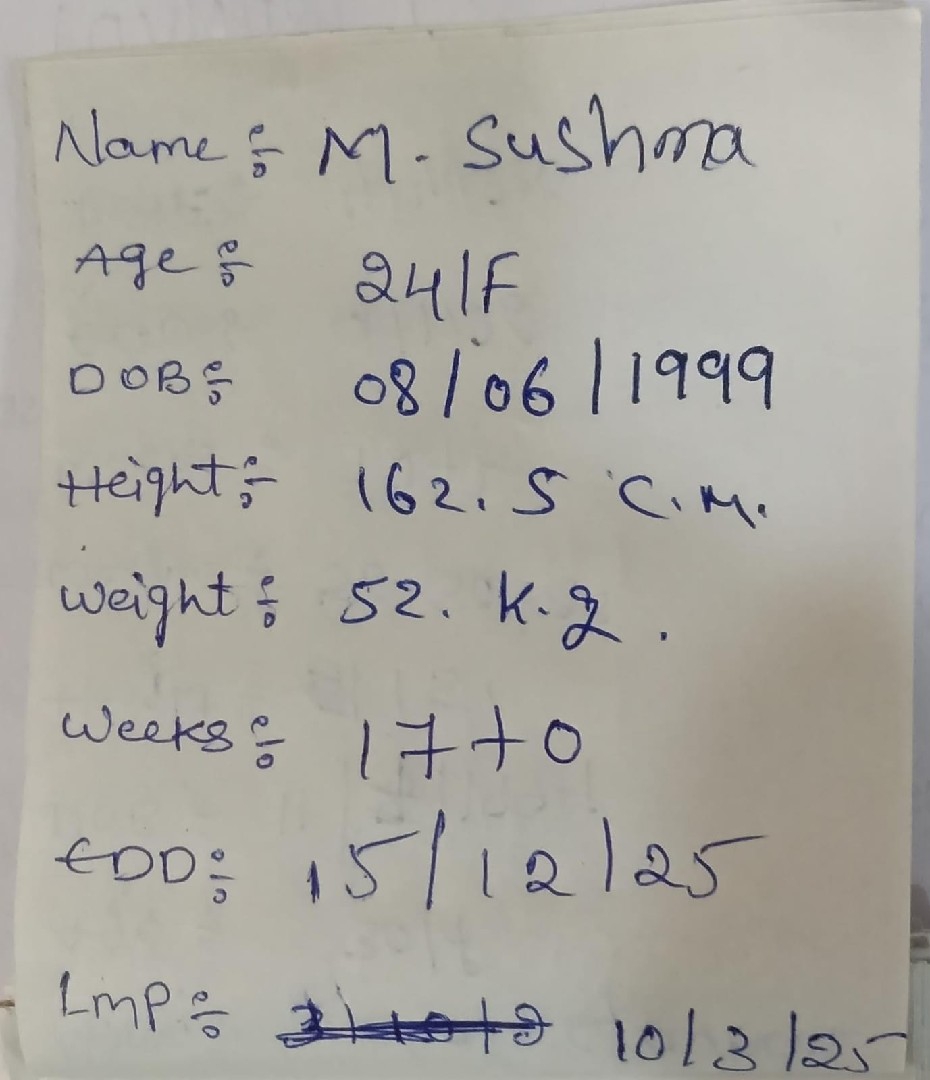 Name : M. Sushma
Age : 24/F
DOB : 08/06/1999
Height : 162.5 C.M.
Weight : 52. K.g.
Weeks : 17+0
EDD : 15/12/25
LMP : 10/3/25